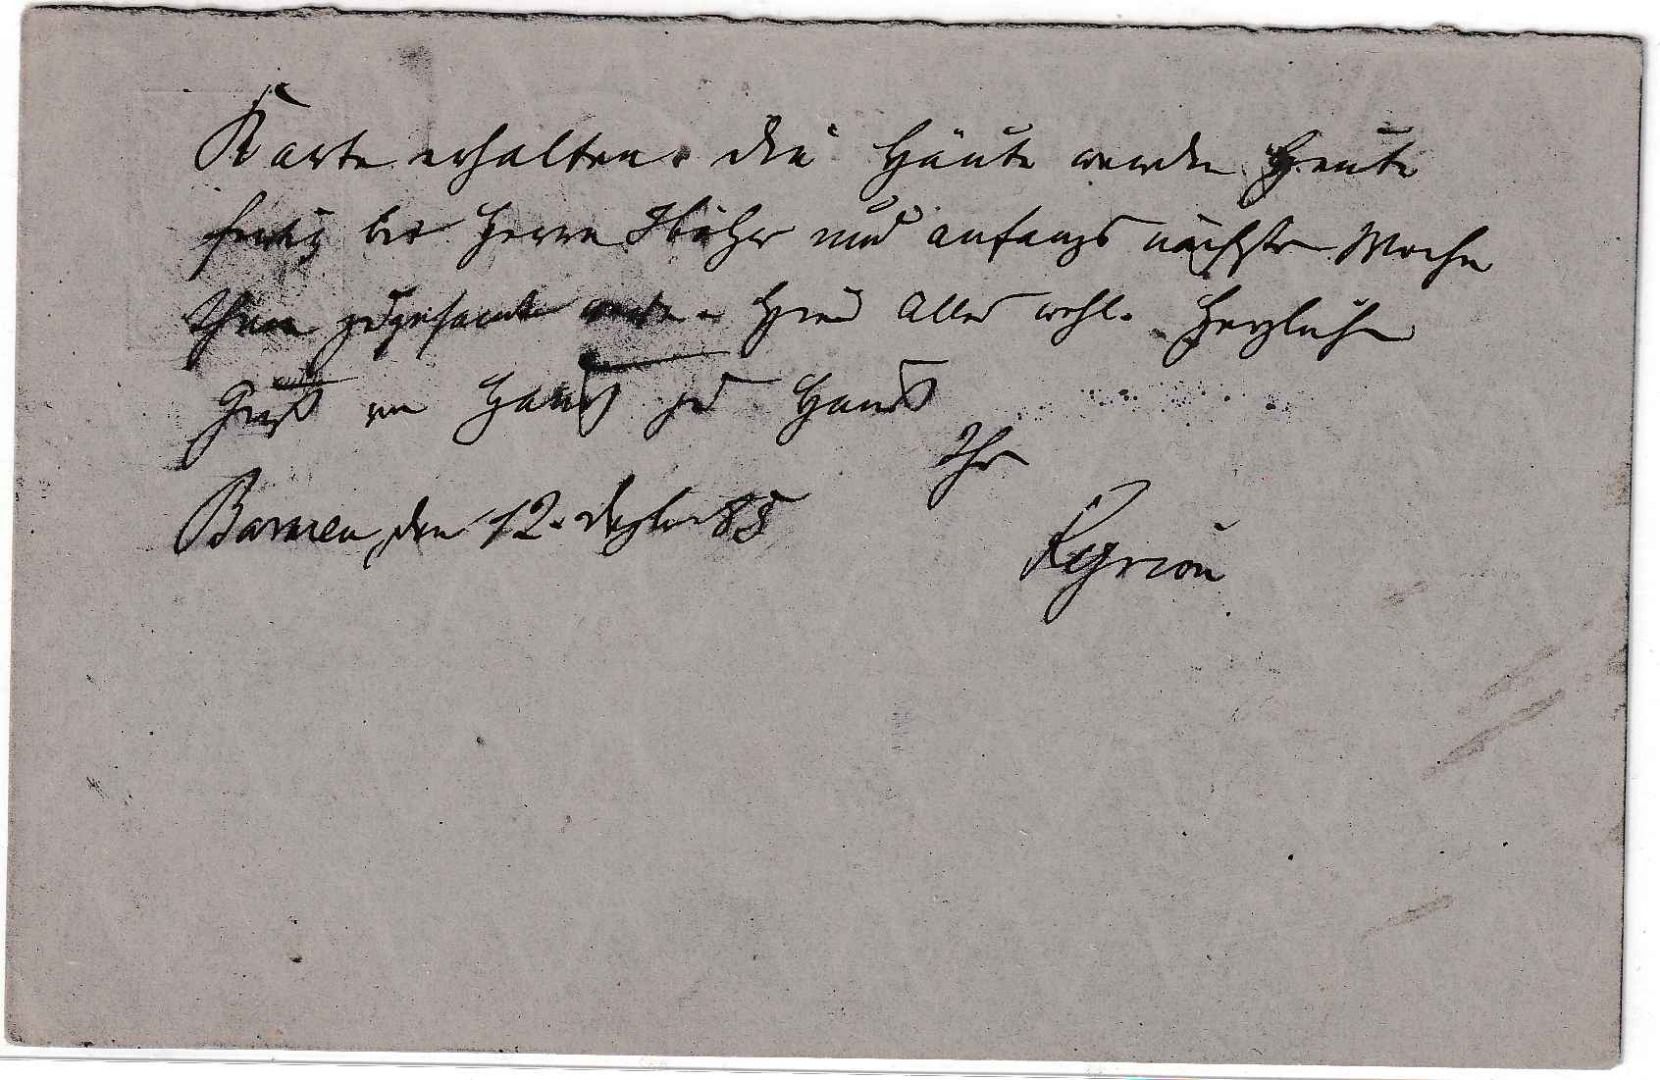 Karte erhalten. Die Häute werden Heute
fertig bei Herrn und anfangs nächster Woche
Ihnen zugesandt werden Hier Alles wohl. Herzlichen
Gruß von Haus zu Haus
Ihr
Barmen, den 12. Dezber 85